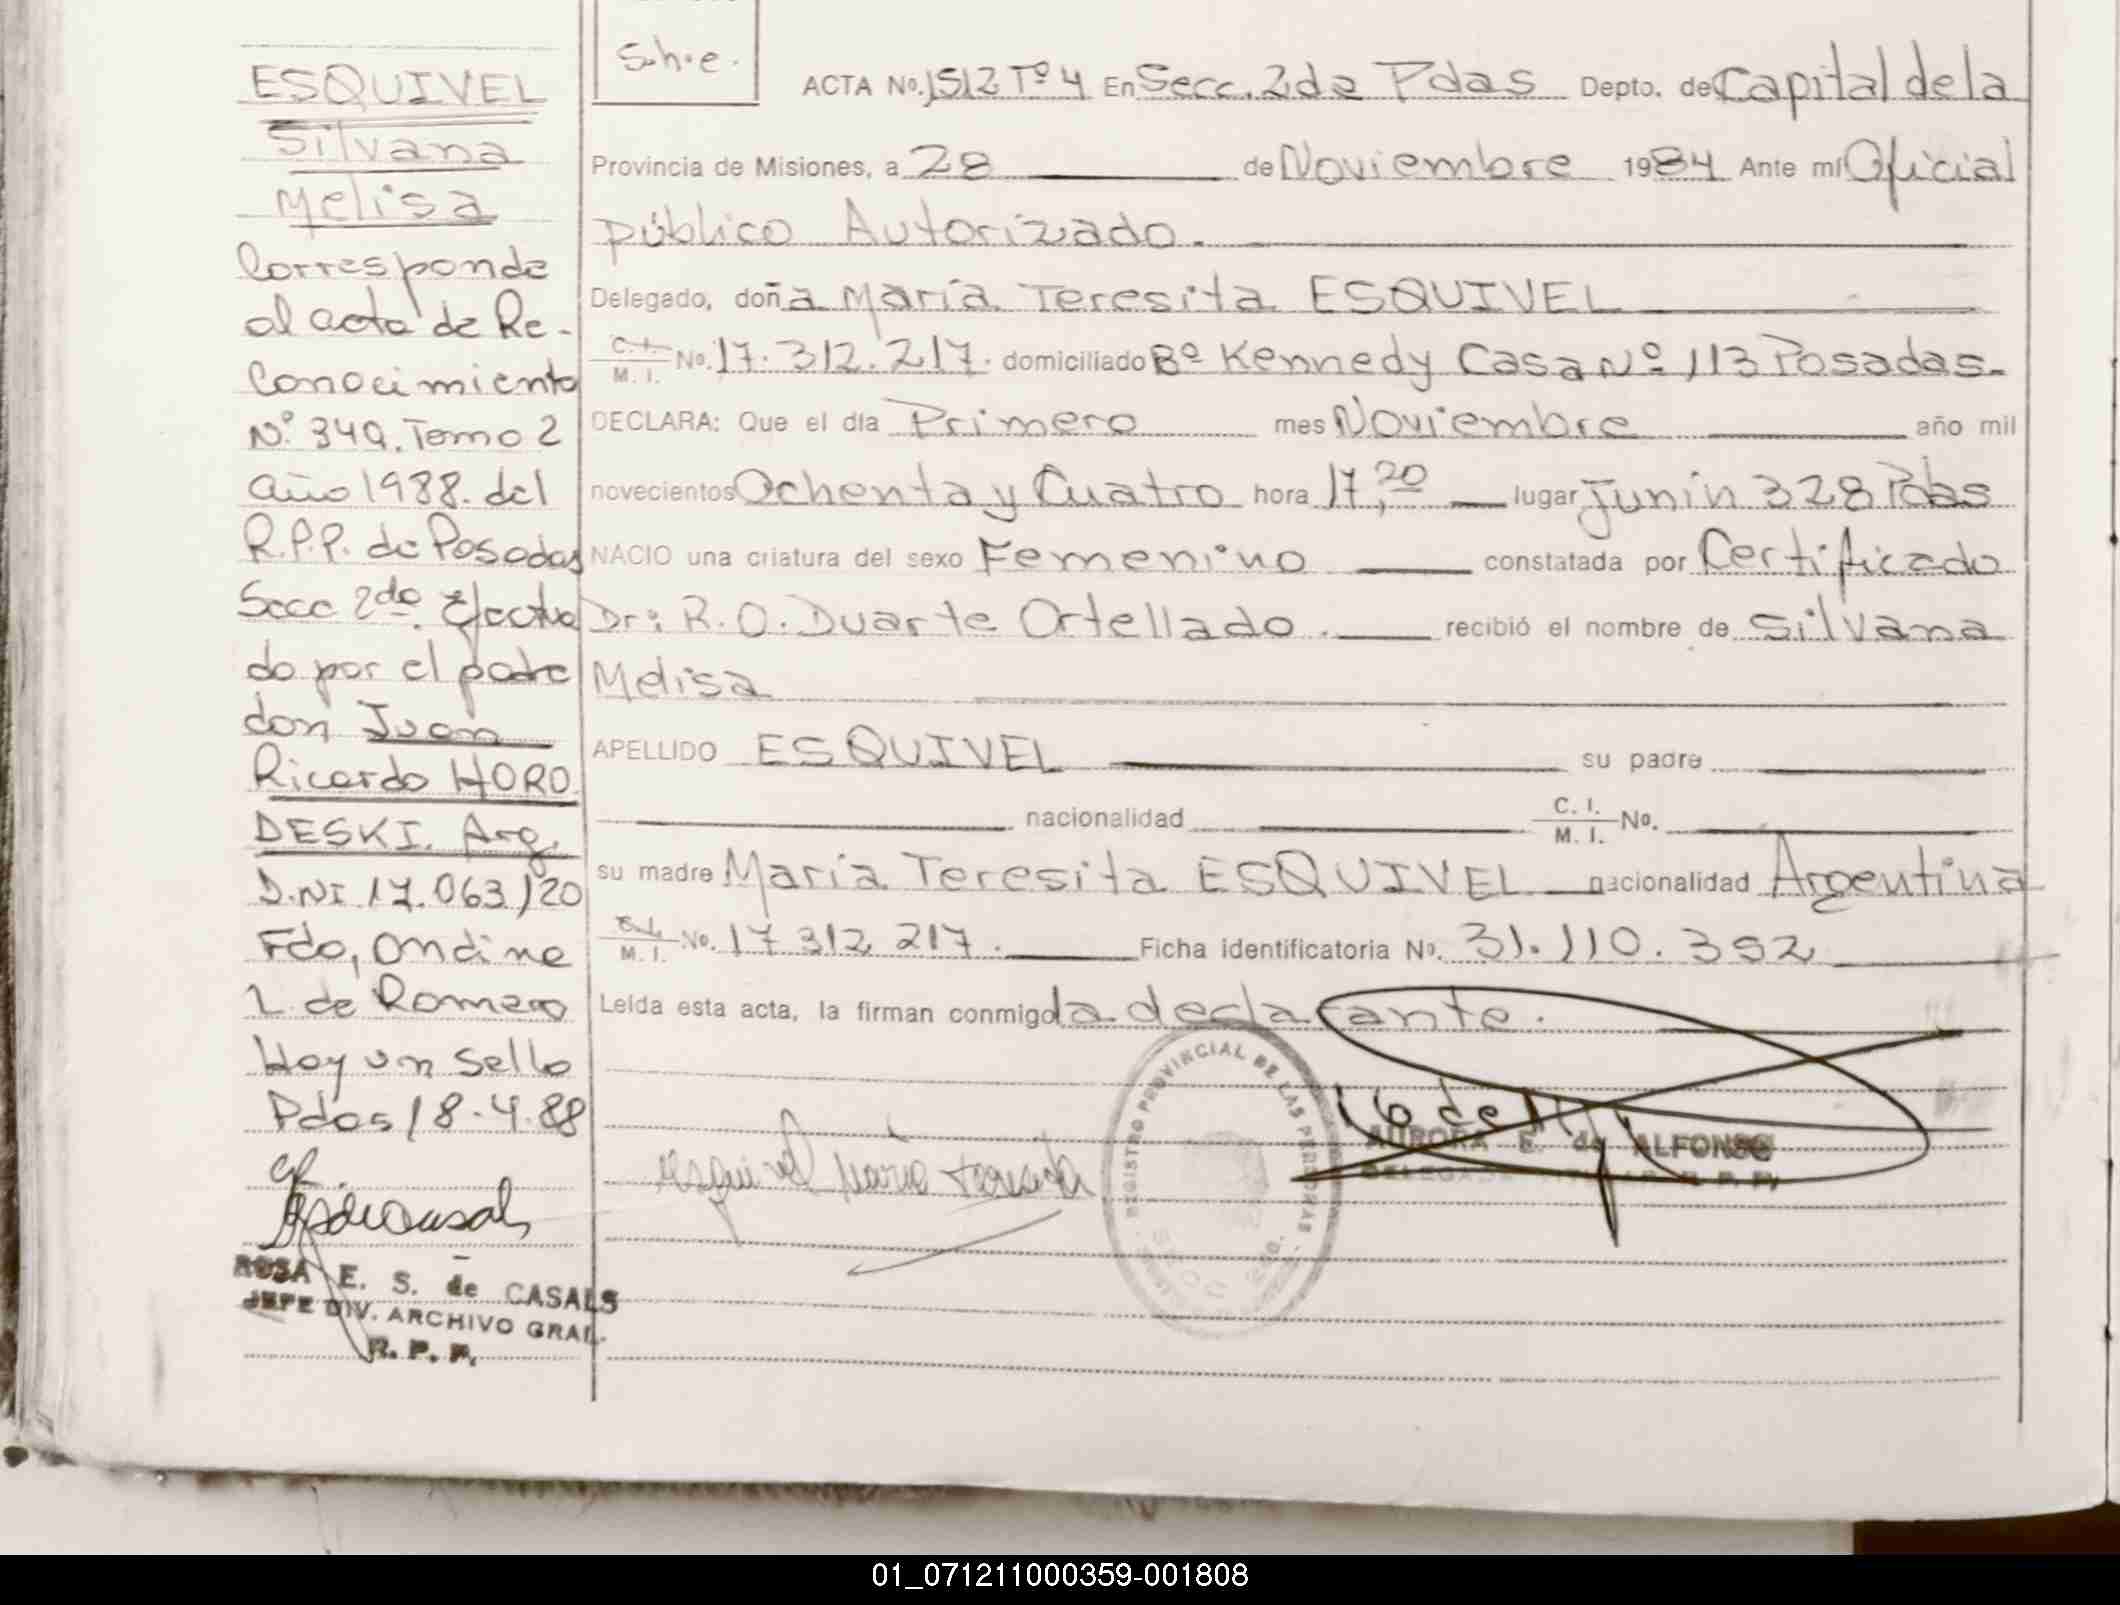 ESQUIVEL
Silvana
Melisa
Corresponde
al acta de Re-
conocimiento
Nº 349. Tomo 2
año 1988. del
R.P.P. de Posadas
Secc 2da. Efectua
do por el padre
don Juan
Ricardo HORO
DESKI. Arg.
D.NI 17.063120
Fdo, Ondina
L. de Romero
Hay un sello
Pdas 18-4-88
ROSA E. S. de CASALS
JEFE DIV. ARCHIVO GRAL.
R. P. P.
S.h.e.
ACTA No. 1512 Tº 4 En Secc. 2da Pdas Depto. de Capital de la
Provincia de Misiones, a 28 de Noviembre 1984 Ante mí Oficial
público Autorizado.
Delegado, doña María Teresita ESQUIVEL
C. I. M. I. No. 17.312.217. domiciliado Bº Kennedy Casa Nº 113 Posadas.
DECLARA: Que el día Primero mes Noviembre año mil
novecientos Ochenta y Cuatro hora 17,20 lugar Junín 328 Pdas
NACIO una criatura del sexo Femenino constatada por Certificado
Dr: R.O. Duarte Ortellado. recibió el nombre de Silvana
Melisa
APELLIDO ESQUIVEL su padre
nacionalidad C. I. M. I. No.
su madre María Teresita ESQUIVEL nacionalidad Argentina
C. I. M. I. No. 17 312 217. Ficha identificatoria No. 31.110.352
Leída esta acta, la firman conmigo la declarante.
Esquivel María Teresita
REGISTRO PROVINCIAL DE LAS PERSONAS
AURORA E. de ALFONSO
01_071211000359-001808